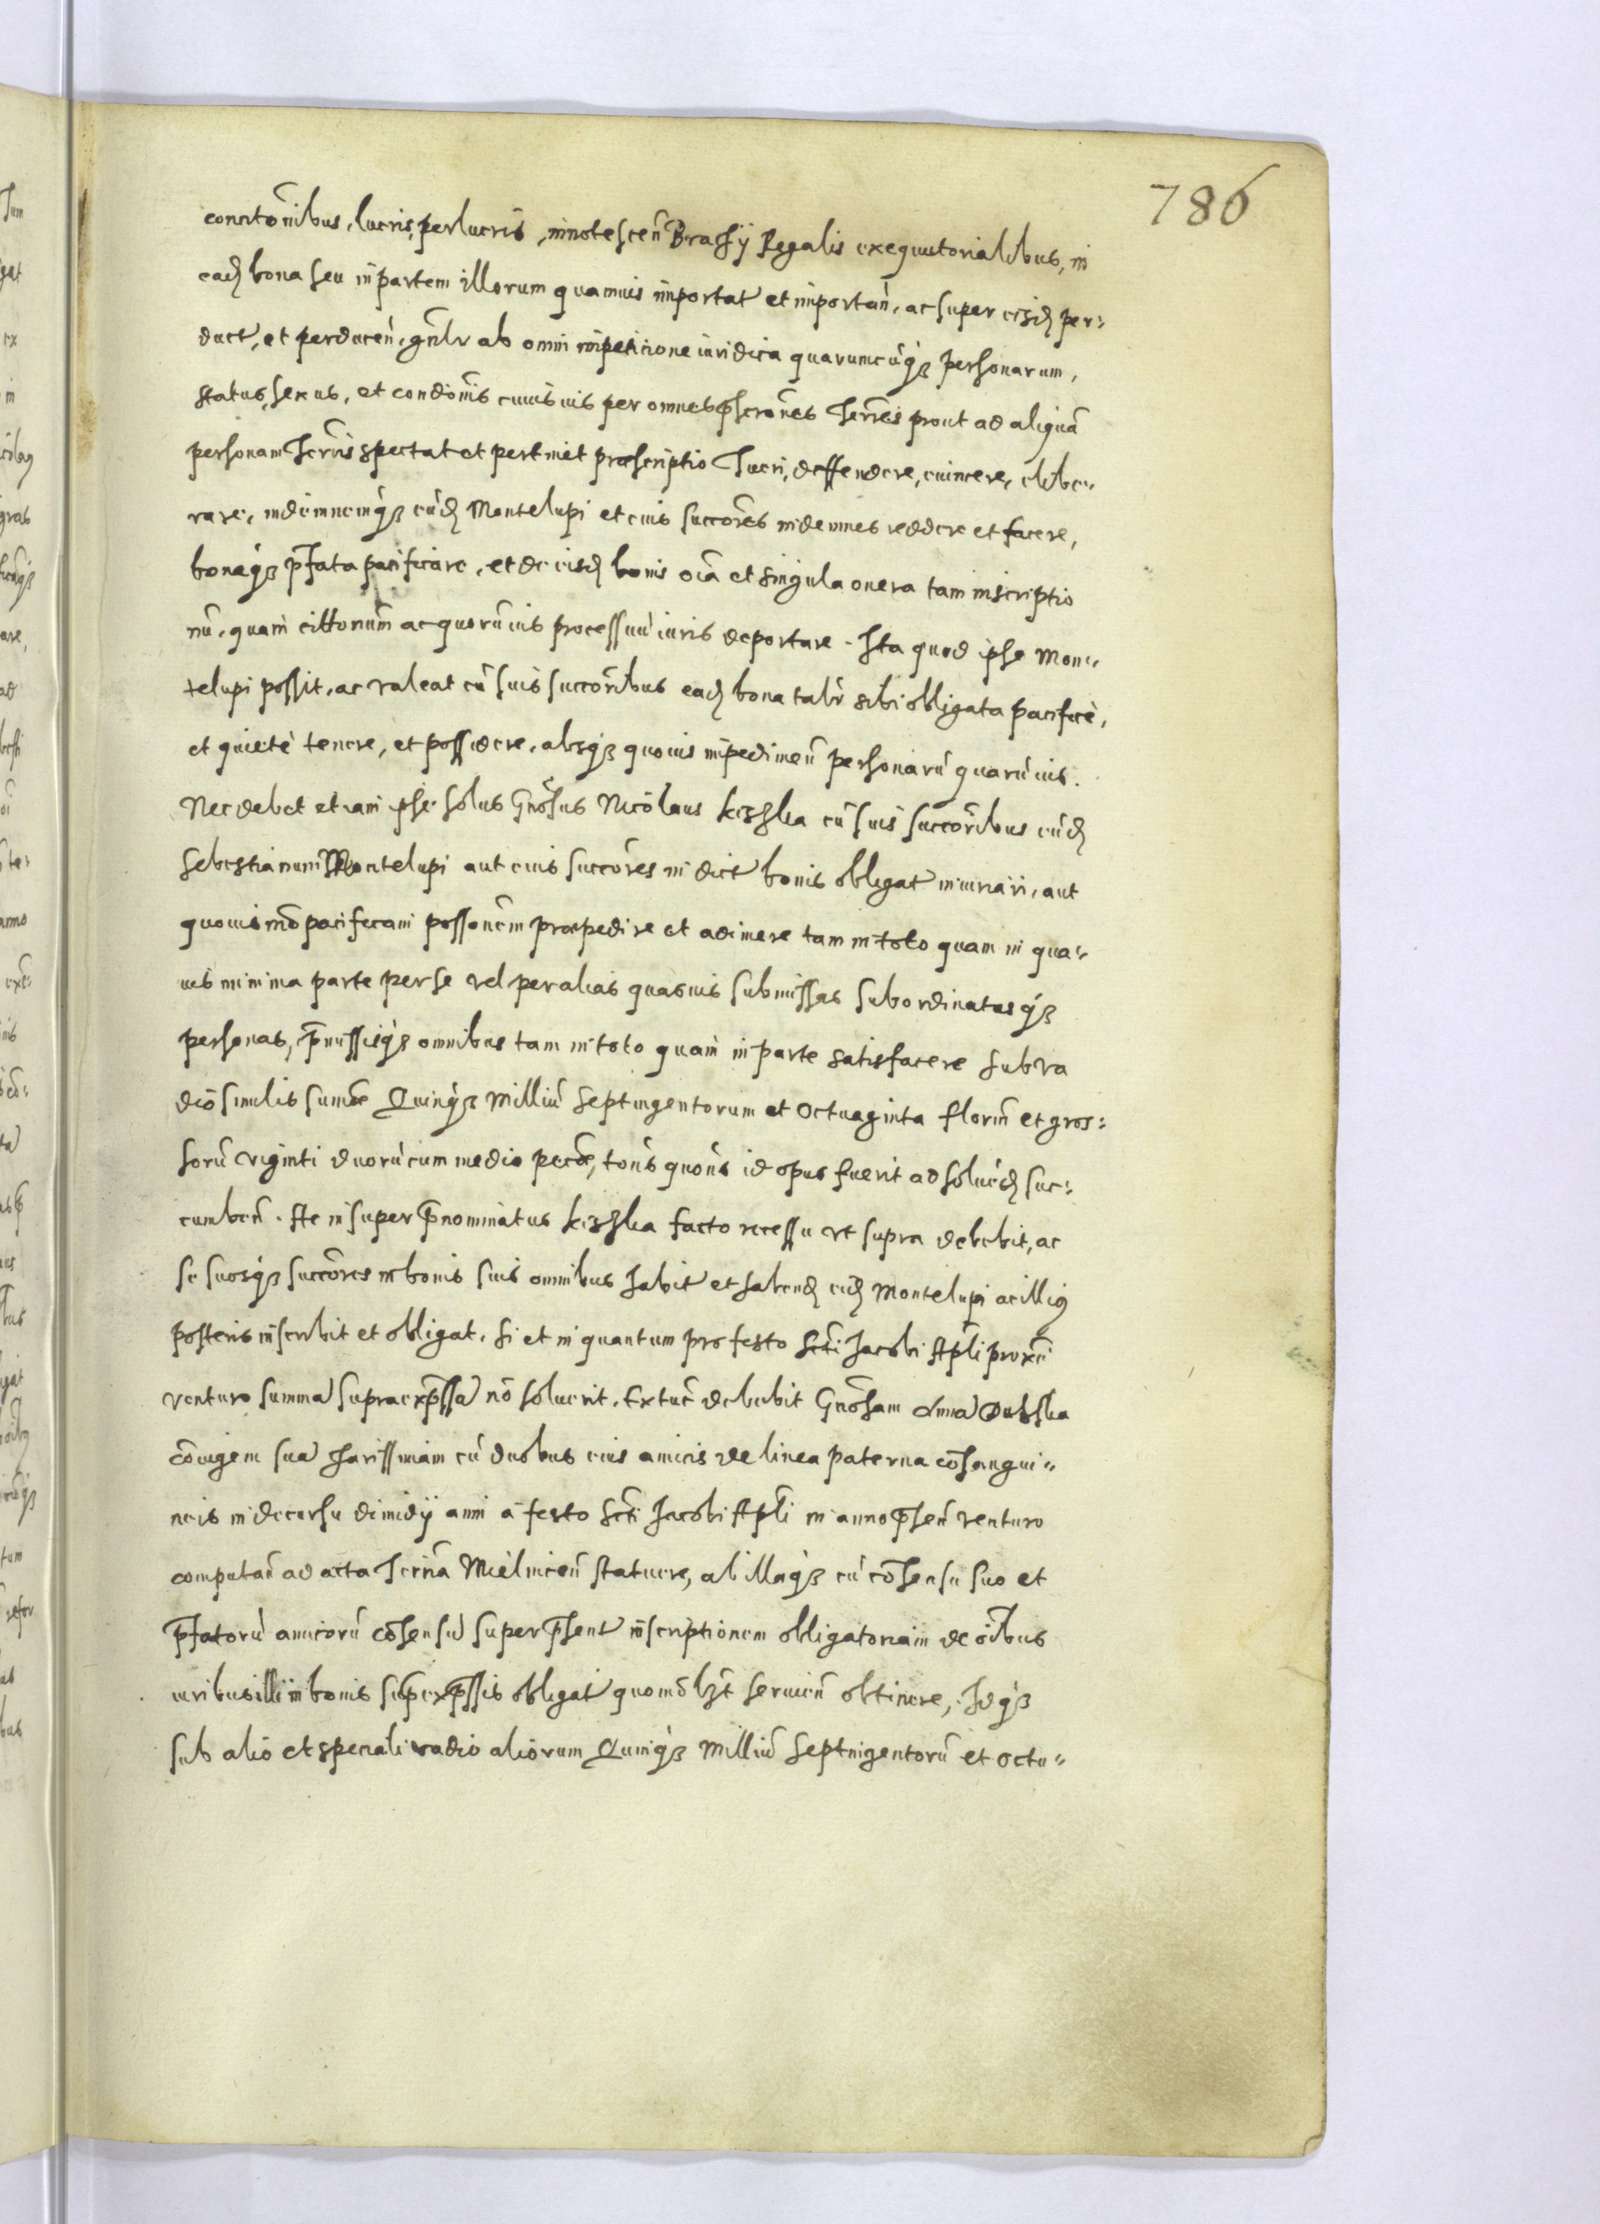 786
convictonibus, lucris, perlucris, innotescen Brachij Regalis exequutorialibus, in
eads bona seu in partem illorum quamuis importat et importan, ac super eisds per:
duct, et perducen, gnlr ab omni impeticione iuridica quarumcuqz personarum,
status, sexus, et condonis cuiusuis per omnes pscrones Terres prout ad aliqua
personam Terris spectat et pertinet praescriptio Tueri, deffendere, euincere, elibe-
rare, indemnemqz euds Montelupi et eius succores indemnes reddere et facere,
bonaqz pfata pacificare, et de eisds bonis oia et singula onera tam inscriptio
nu, quam cittonum ac quoruuis processuu iuris deportare. Ita quod ipse Mon-
telupi possit, ac valeat cu suis succoribus eads bona talr sibi obligata pacifice,
et quiete tenere, et possidere, absqz quouis impedimen personaru quaruuis.
Nec debet etiam ipse solus Gnosus Nicolaus Kiszka cu suis succoribus euds
Sebestianum Montelupi aut eius succores in dict bonis obligat iniuriari, aut
quouis mo pacificam possonem praepedire et adimere tam in toto quam in qua-
uis minima parte per se vel per alias quasuis submissas subordinatasqz
personas, pmissisqz omnibus tam in toto quam in parte satisfacere sub va
dio similis sumae Quinqz Milliu Septingentorum et Octuaginta florin et gros:
soru viginti duoru cum medio pecae, tons quons id opus fuerit ad soluends suc:
cumben. Ac insuper pnominatus Kiszka facto recessu vt supra debebit, ac
se suosqz succores in bonis suis omnibus habit et habends eids Montelupi ac illius
posteris inscribit et obligat. Si et in quantum pro festo Scti Jacobi Apli proxe
venturo summa supraexpssa no soluerit. Extunc debebit Gnosam Anna
coiugem sua charissimam cu duobus eius amicis de linea paterna cosangui-
neis in decursu dimidij anni a festo Scti Jacobi Apli in anno psen venturo
computan ad acta Terrna Mielnicen statuere, ab illaqz cu cosensu suo et
pfatoru amicoru cosensu super psent inscriptionem obligatoriam de oibus
iuribus illi in bonis supexpssis obligat quomolzt seruien obtinere, Idqz
sub alio et speciali vadio aliorum Quinqz Milliu Septingentoru et octu-